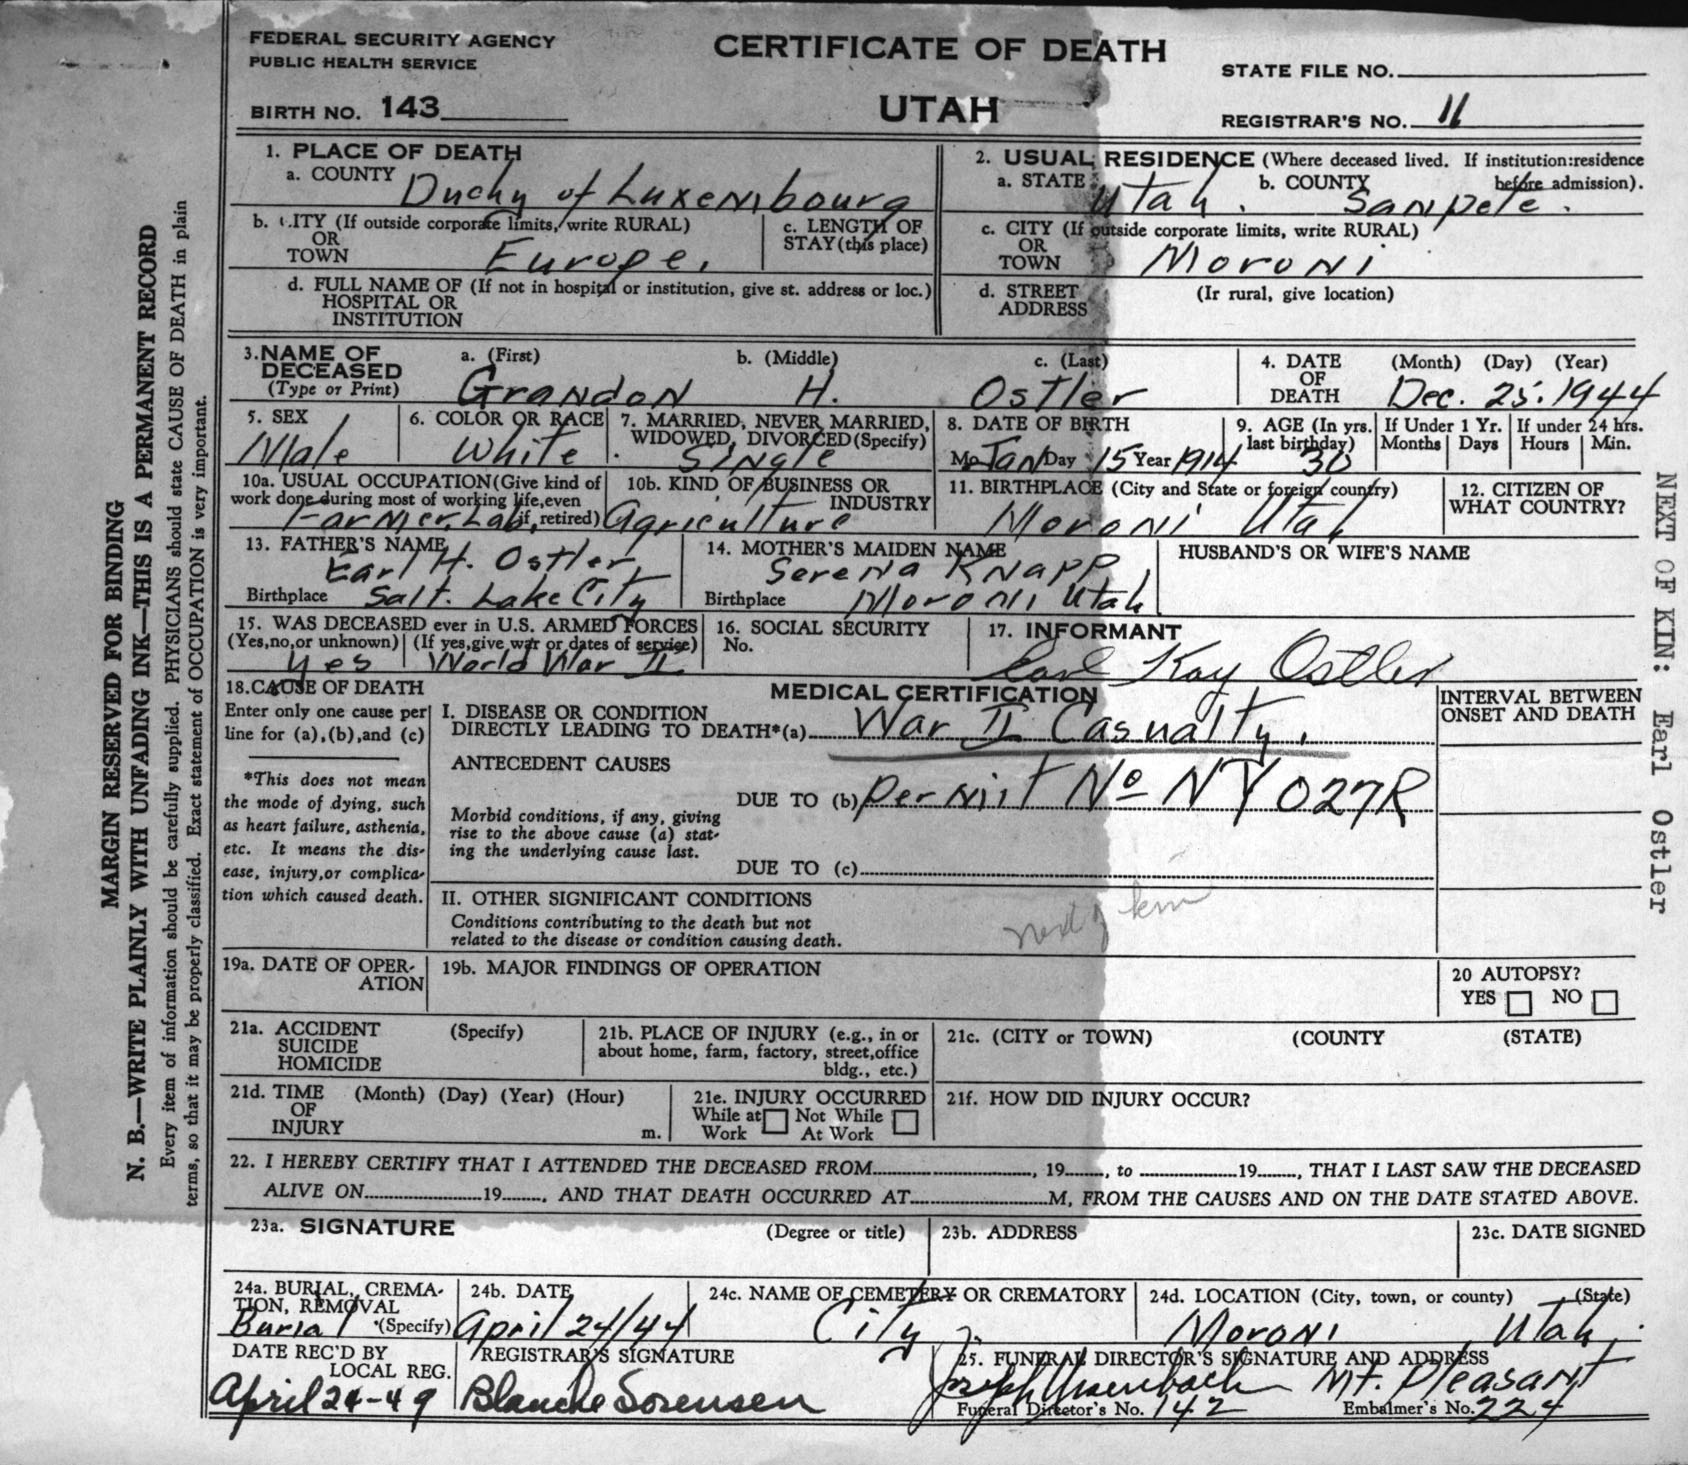 FEDERAL SECURITY AGENCY
PUBLIC HEALTH SERVICE
CERTIFICATE OF DEATH
STATE FILE NO.
BIRTH NO. 143
UTAH
REGISTRAR'S NO. 11
1. PLACE OF DEATH
a. COUNTY Duchy of Luxembourg
2. USUAL RESIDENCE (Where deceased lived. If institution:residence before admission).
a. STATE Utah. b. COUNTY Sanpete.
b. CITY (If outside corporate limits, write RURAL)
OR
TOWN Europe.
c. LENGTH OF
STAY (this place)
c. CITY (If outside corporate limits, write RURAL)
OR
TOWN Moroni
d. FULL NAME OF (If not in hospital or institution, give st. address or loc.)
HOSPITAL OR
INSTITUTION
d. STREET (Ir rural, give location)
ADDRESS
3. NAME OF
DECEASED
(Type or Print)
a. (First) b. (Middle) c. (Last)
Grandon H. Ostler
4. DATE (Month) (Day) (Year)
OF
DEATH Dec. 25. 1944
5. SEX
Male
6. COLOR OR RACE
White.
7. MARRIED, NEVER MARRIED,
WIDOWED, DIVORCED (Specify)
Single
8. DATE OF BIRTH
Mo. Jan Day 15 Year 1914
9. AGE (In yrs.
last birthday)
30
If Under 1 Yr.
Months Days
If under 24 hrs.
Hours Min.
10a. USUAL OCCUPATION (Give kind of
work done during most of working life, even
if retired) Farmer, Lab.
10b. KIND OF BUSINESS OR
INDUSTRY
Agriculture
11. BIRTHPLACE (City and State or foreign country)
Moroni Utah
12. CITIZEN OF
WHAT COUNTRY?
13. FATHER'S NAME
Earl H. Ostler
Birthplace Salt. Lake City
14. MOTHER'S MAIDEN NAME
Serena Knapp
Birthplace Moroni Utah
HUSBAND'S OR WIFE'S NAME
15. WAS DECEASED ever in U.S. ARMED FORCES
(Yes, no, or unknown) (If yes, give war or dates of service)
yes World War II
16. SOCIAL SECURITY
No.
17. INFORMANT
Earl Kay Ostler
18. CAUSE OF DEATH
Enter only one cause per
line for (a), (b), and (c)
*This does not mean
the mode of dying, such
as heart failure, asthenia,
etc. It means the dis-
ease, injury, or complica-
tion which caused death.
MEDICAL CERTIFICATION
INTERVAL BETWEEN
ONSET AND DEATH
I. DISEASE OR CONDITION
DIRECTLY LEADING TO DEATH*(a) War II Casualty.
ANTECEDENT CAUSES
DUE TO (b) permit No NY 027R
Morbid conditions, if any, giving
rise to the above cause (a) stat-
ing the underlying cause last.
DUE TO (c)
II. OTHER SIGNIFICANT CONDITIONS
Conditions contributing to the death but not
related to the disease or condition causing death.
next of kin
19a. DATE OF OPER-
ATION
19b. MAJOR FINDINGS OF OPERATION
20 AUTOPSY?
YES NO
21a. ACCIDENT (Specify)
SUICIDE
HOMICIDE
21b. PLACE OF INJURY (e.g., in or
about home, farm, factory, street, office
bldg., etc.)
21c. (CITY or TOWN) (COUNTY (STATE)
21d. TIME (Month) (Day) (Year) (Hour)
OF
INJURY m.
21e. INJURY OCCURRED
While at Not While
Work At Work
21f. HOW DID INJURY OCCUR?
22. I HEREBY CERTIFY THAT I ATTENDED THE DECEASED FROM , 19 , to 19 , THAT I LAST SAW THE DECEASED
ALIVE ON 19 , AND THAT DEATH OCCURRED AT M, FROM THE CAUSES AND ON THE DATE STATED ABOVE.
23a. SIGNATURE (Degree or title)
23b. ADDRESS
23c. DATE SIGNED
24a. BURIAL, CREMA-
TION, REMOVAL
Burial (Specify)
24b. DATE
April 24/44
24c. NAME OF CEMETERY OR CREMATORY
City
24d. LOCATION (City, town, or county) (State)
Moroni Utah.
DATE REC'D BY
LOCAL REG.
April 24-49
REGISTRAR'S SIGNATURE
Blanche Sorensen
25. FUNERAL DIRECTOR'S SIGNATURE AND ADDRESS
Mt. Pleasant
Funeral Director's No. 142 Embalmer's No. 224
MARGIN RESERVED FOR BINDING
N. B.—WRITE PLAINLY WITH UNFADING INK—THIS IS A PERMANENT RECORD
Every item of information should be carefully supplied. PHYSICIANS should state CAUSE OF DEATH in plain
terms, so that it may be properly classified. Exact statement of OCCUPATION is very important.
NEXT OF KIN: Earl Ostler